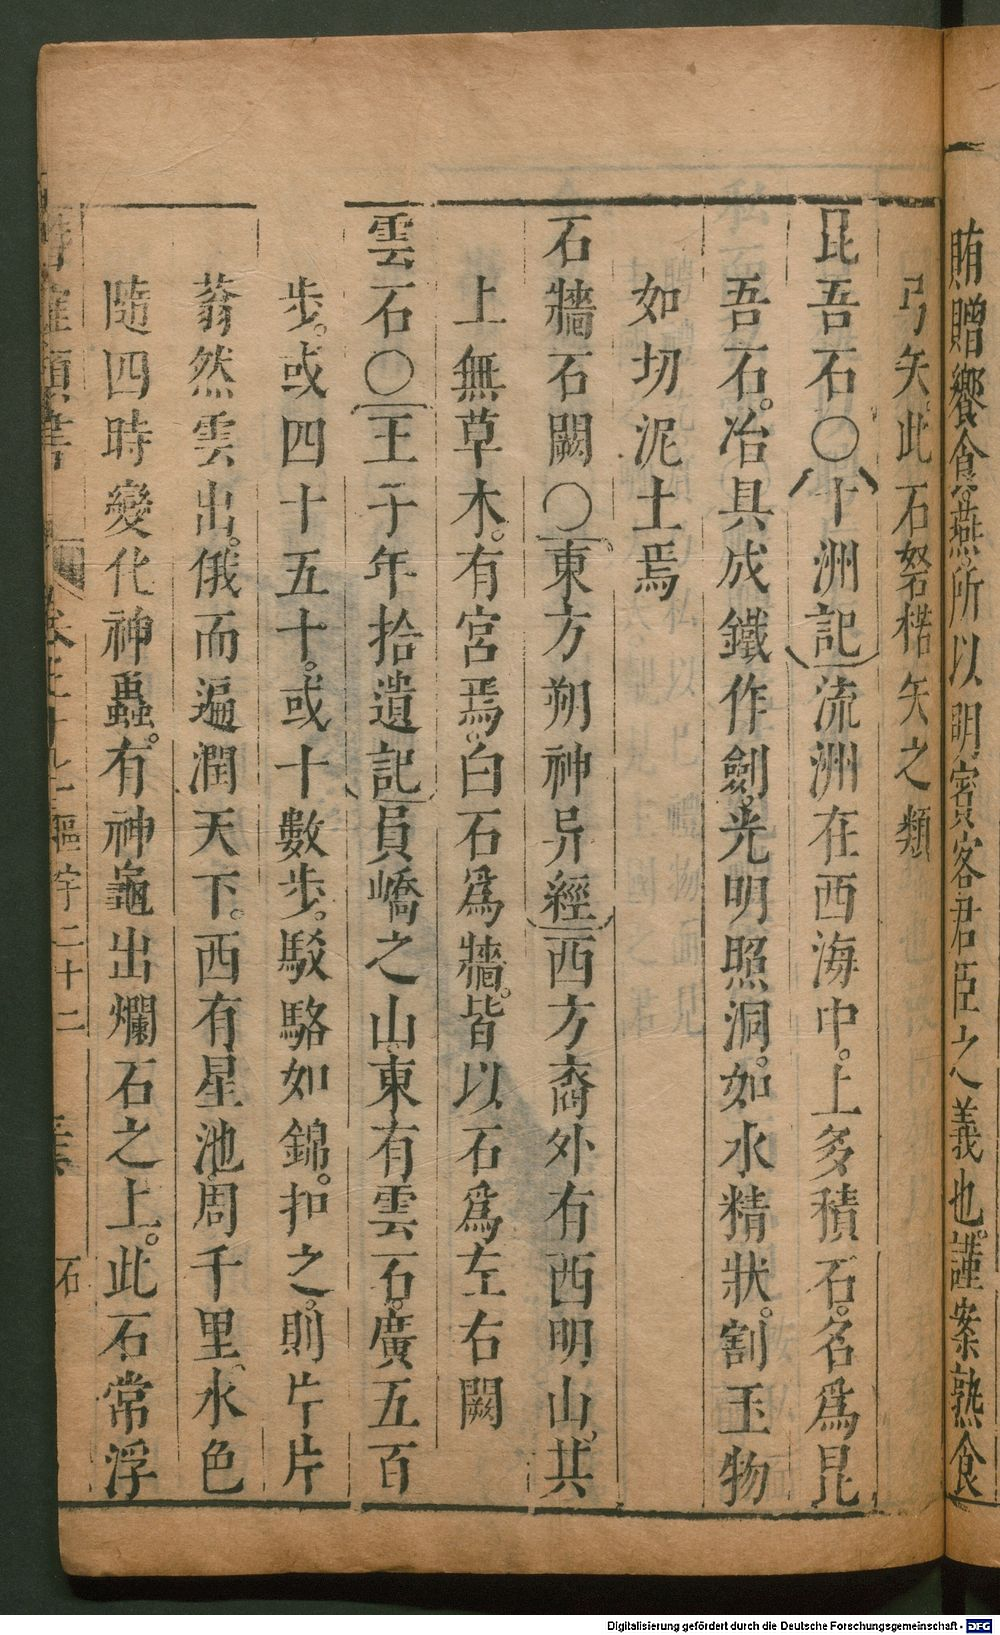 賄贈饗食燕所以明賓客君臣之義也。謹案熟食
弓矢。此石砮楛矢之類
昆吾石〇十洲記流洲在西海中。上多積石。名爲昆
吾石。冶其成鐵作劍。光明照洞。如水精狀。割玉物
如切泥土焉
石牆石闕〇東方朔神异經西方裔外有西明山。其
上無草木。有宮焉。白石爲牆。皆以石爲左右闕
雲石〇王子年拾遺記員嶠之山。東有雲石。廣五百
步。或四十五十。或十數步。駁駱如錦。扣之。則片片
蓊然雲出。俄而遍潤天下。西有星池。周千里。水色
隨四時變化神蟲。有神龜出爛石之上。此石常浮
二十二
石
Digitalisierung gefördert durch die Deutsche Forschungsgemeinschaft - DFG